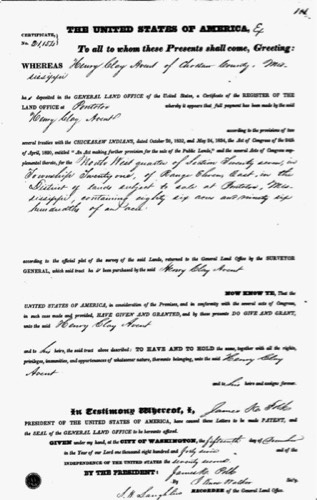 THE UNITED STATES OF AMERICA,
CERTIFICATE
No.
To all to whom these Presents shall come, Greeting:
WHEREAS Henry Clay Avent of Choctaw County, Mis-
sissippi
ha deposited in the GENERAL LAND OFFICE of the United States, a Certificate of the REGISTER OF THE
LAND OFFICE at Pontotoc whereby it appears that full payment has been made by the said
Henry Clay Avent
according to the provisions of two
several treaties with the CHICKASAW INDIANS, dated October 20, 1832, and May 24, 1834, the Act of Congress of the 24th
of April, 1820, entitled "An Act making further provision for the sale of the Public Lands," and the several Acts of Congress sup-
plemental thereto, for the North West quarter of Section Twenty seven, in
Township Twenty one, of Range Eleven East, in the
District of lands subject to sale at Pontotoc, Mis-
sissippi, containing eighty six acres and ninety six
hundredths of an acre
according to the official plat of the survey of the said Lands, returned to the General Land Office by the SURVEYOR
GENERAL, which said tract ha been purchased by the said Henry Clay Avent
NOW KNOW YE, That the
UNITED STATES OF AMERICA, in consideration of the Premises, and in conformity with the several acts of Congress,
in such case made and provided, HAVE GIVEN AND GRANTED, and by these presents DO GIVE AND GRANT,
unto the said Henry Clay Avent
and to his heirs, the said tract above described: TO HAVE AND TO HOLD the same, together with all the rights,
privileges, immunities, and appurtenances of whatsoever nature, thereunto belonging, unto the said Henry Clay
Avent
and to his heirs and assigns forever.
In Testimony Whereof, I, James K. Polk
PRESIDENT OF THE UNITED STATES OF AMERICA, have caused these Letters to be made PATENT, and
the SEAL of the GENERAL LAND OFFICE to be hereunto affixed.
GIVEN under my hand, at the CITY OF WASHINGTON, the fifteenth day of
in the Year of our Lord one thousand eight hundred and forty and of the
INDEPENDENCE OF THE UNITED STATES the seventy
BY THE PRESIDENT: James K. Polk
By Walker
S. H. Laughlin RECORDER of the General Land Office.